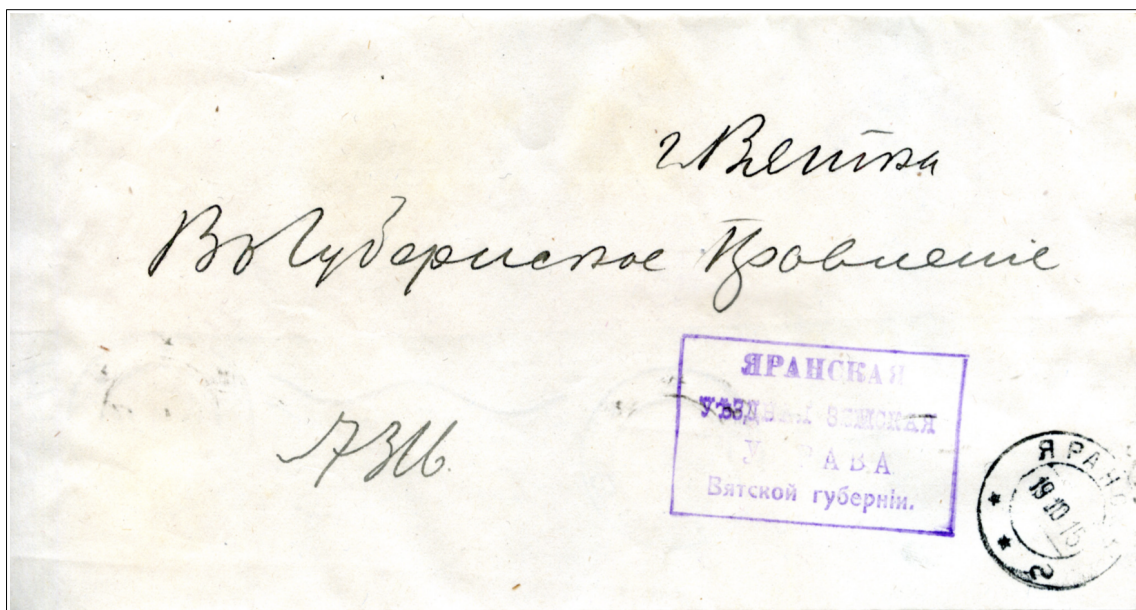 г. Вятка
Въ Губернское Правленіе
ЯРАНСКАЯ
УѢЗДНАЯ ЗЕМСКАЯ
УПРАВА
Вятской губерніи.
7316.
ЯРАНСКЪ
19 10 15